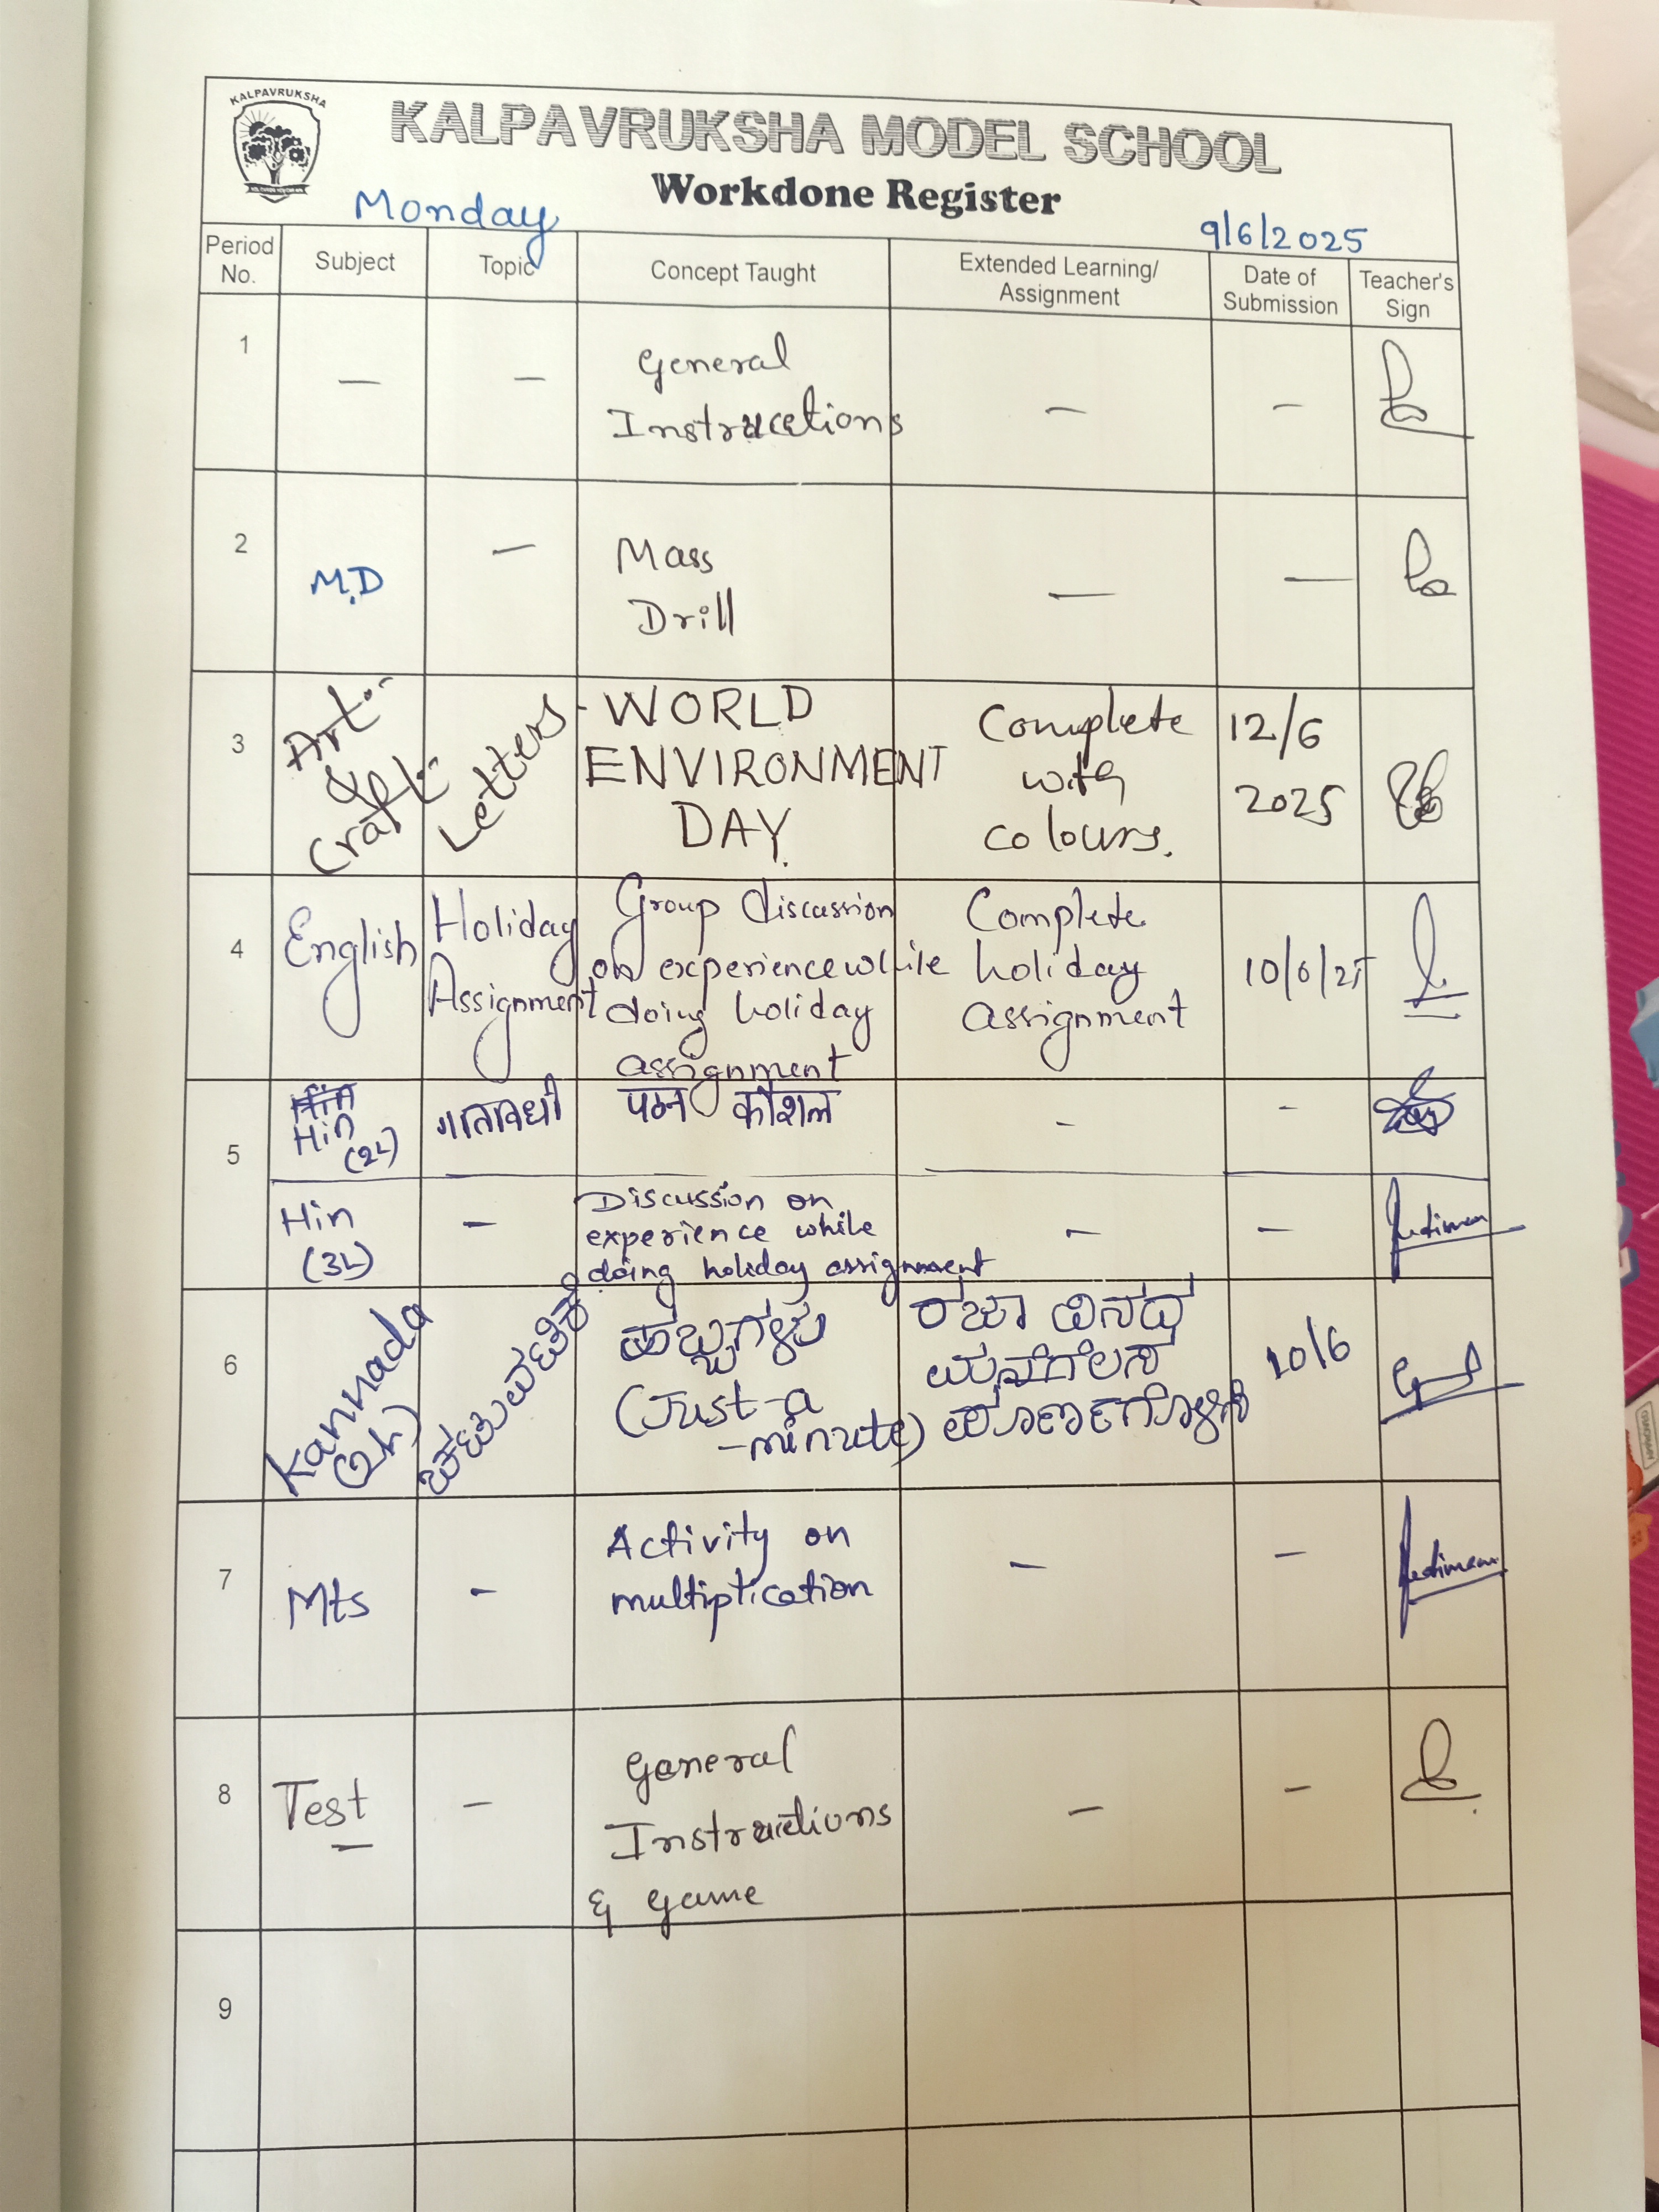 KALPAVRUKSHA
KALPAVRUKSHA MODEL SCHOOL
Workdone Register
Monday
9/6/2025
Period No.
Subject
Topic
Concept Taught
Extended Learning/
Assignment
Date of
Submission
Teacher's
Sign
1
—
—
General
Instructions
—
—
2
M.D
—
Mass
Drill
—
—
3
Art
&
Craft
Letters
- WORLD
ENVIRONMENT
DAY.
Complete
with
colours.
12/6
2025
4
English
Holiday
Assignment
Group discussion
on experience while
doing holiday
assignment
Complete
holiday
assignment
10/6/25
5
Hin
(2L)
गतिविधी
पठन कौशल
-
-
Hin
(3L)
-
Discussion on
experience while
doing holiday assignment
-
-
6
Kannada
(2L)
ಚಟುವಟಿಕೆ
ಹಬ್ಬಗಳು
(Just-a
-minute)
ರಜಾ ದಿನದ
ಮನೆಗೆಲಸ
ಪೂರ್ಣಗೊಳಿಸಿ
10/6
7
Mts
-
Activity on
multiplication
-
-
8
Test
-
General
Instructions
& game
-
-
9